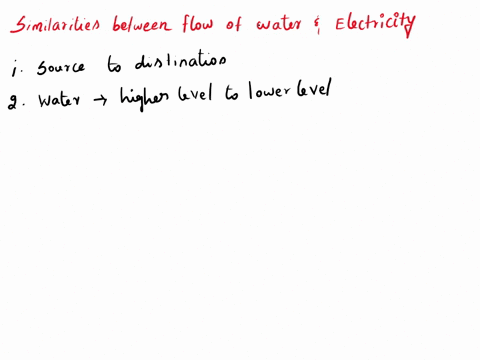 Similarities between flow of water & Electricity
1. Source to distination
2. Water → higher level to lower level